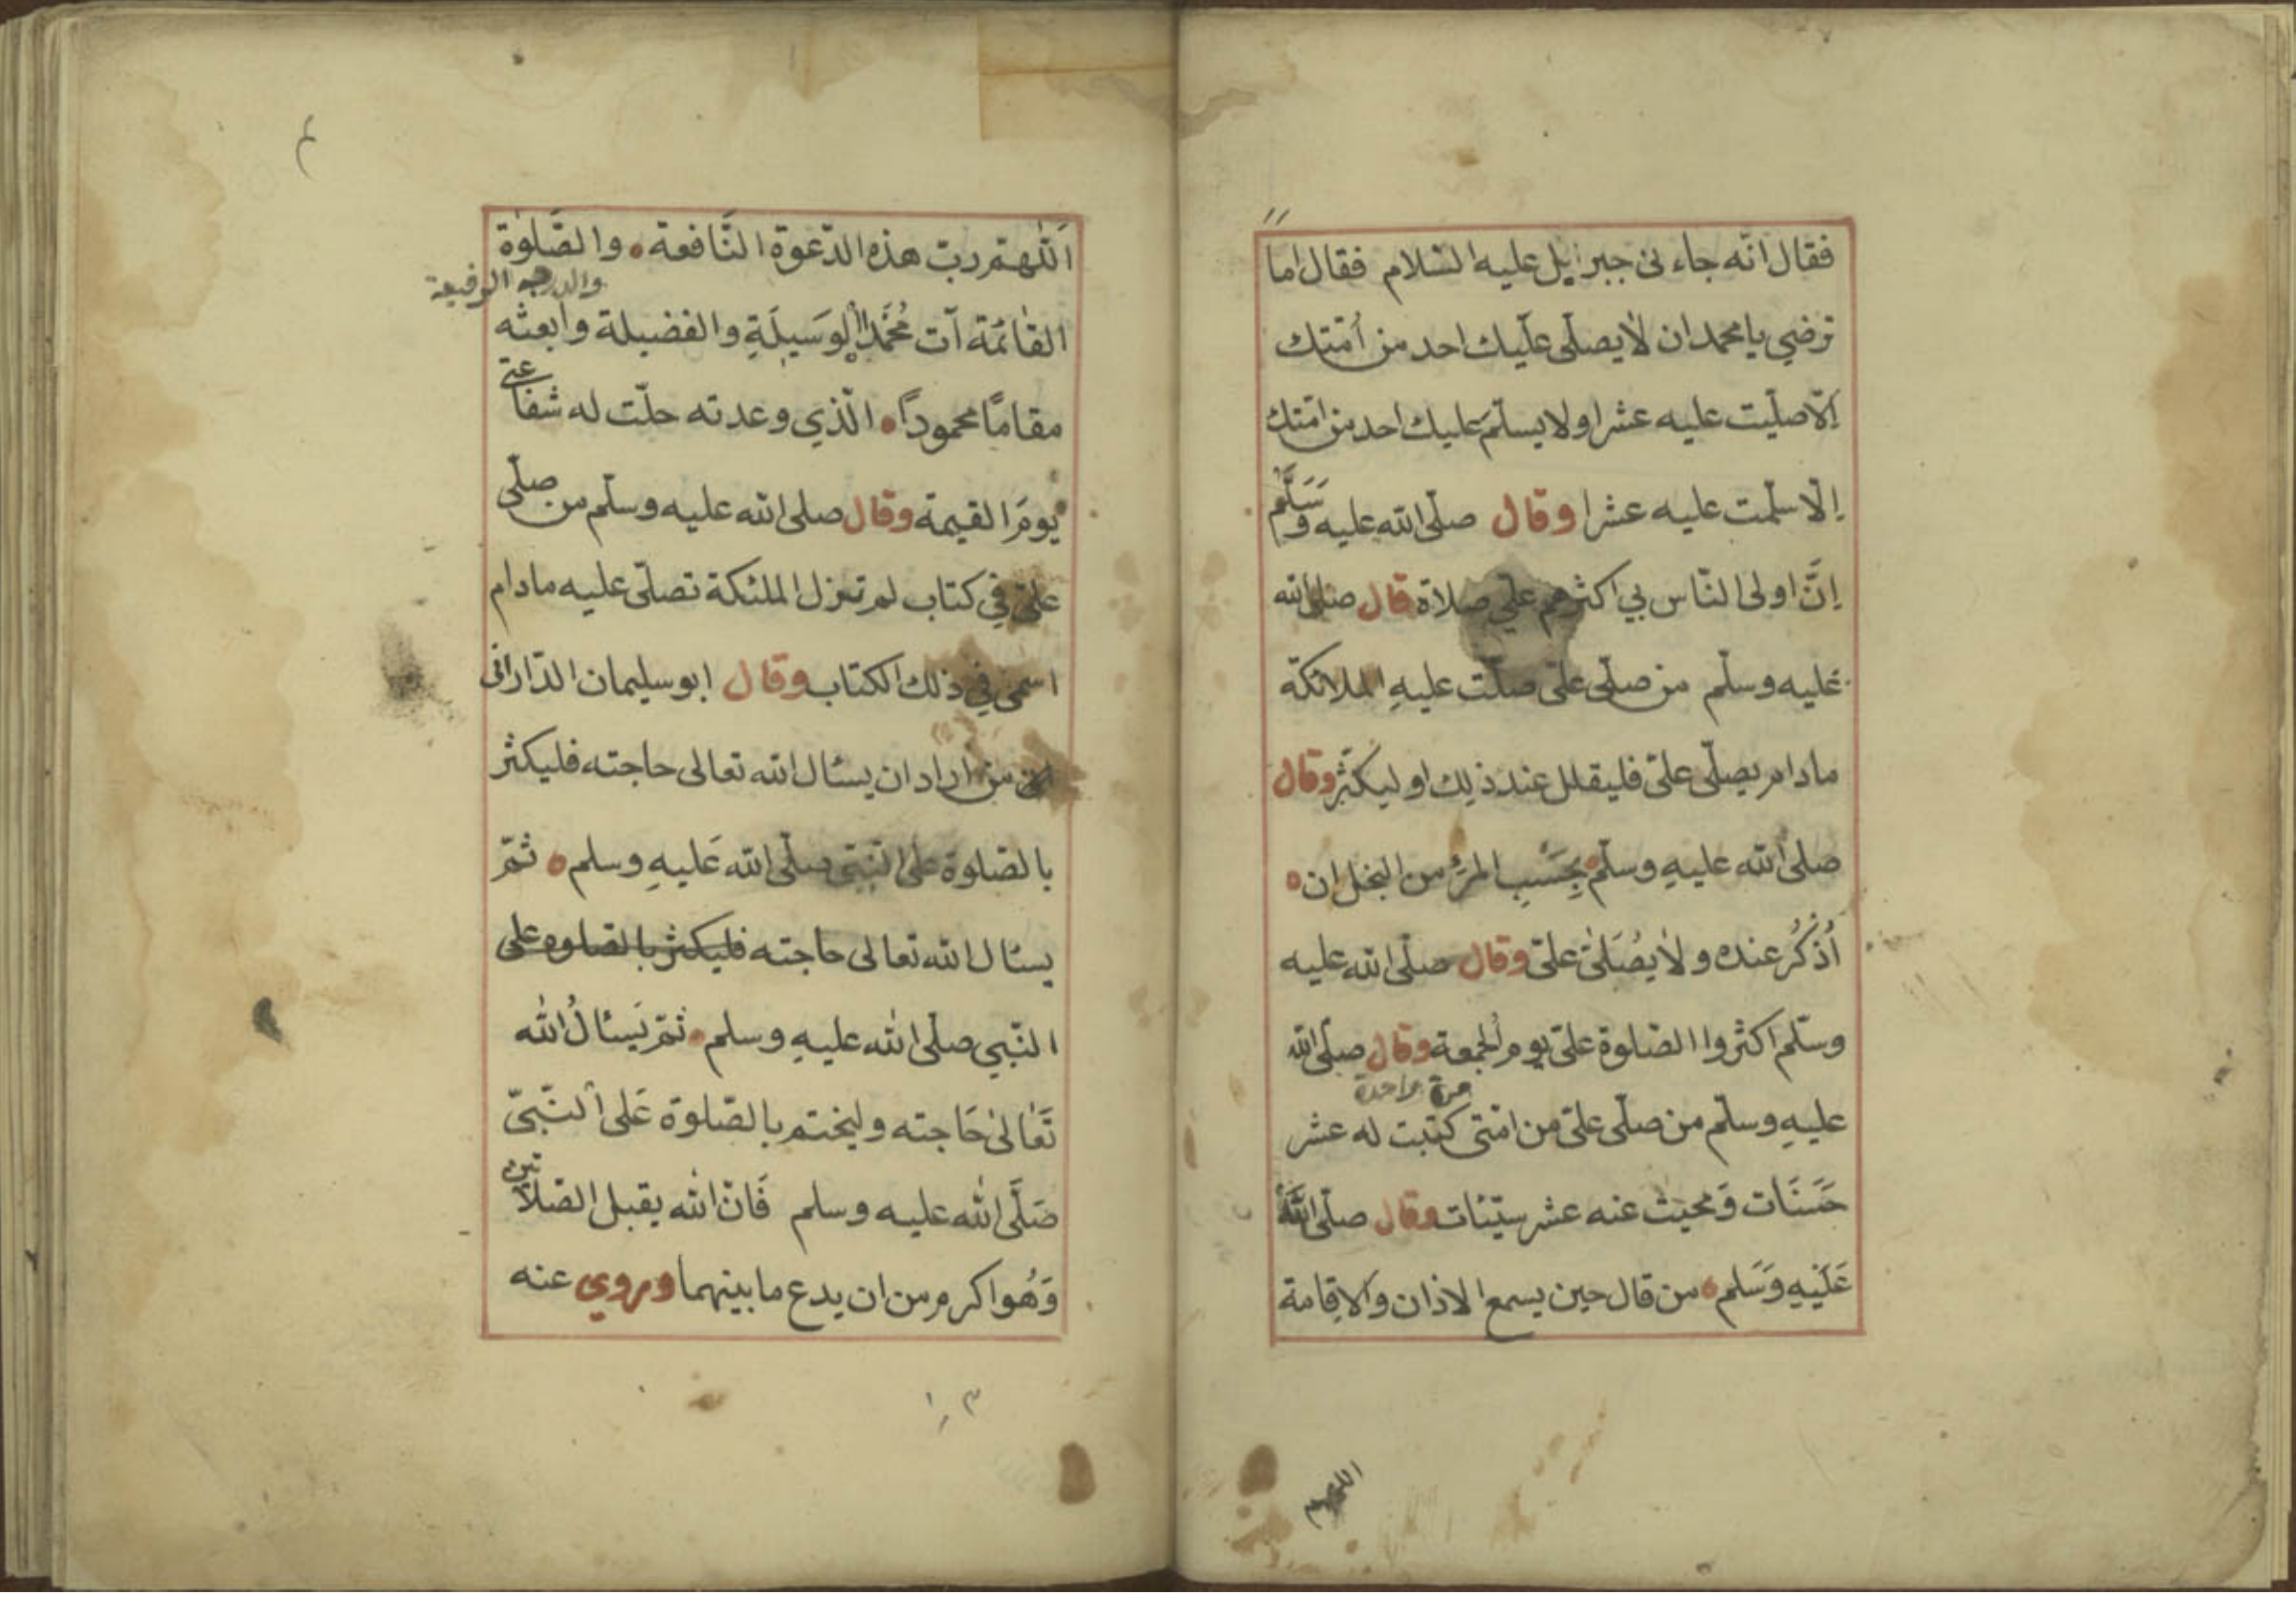 فقال انّه جاءنى جبرايل عليه السّلام فقال اما
ترضي يا محمد ان لا يصلّى عليك احد من أمّتك
إلّا صلّيت عليه عشرا ولا يسلّم عليك احد من امّتك
إلّا سلّمت عليه عشرا وقال صلّى الله عليه وسَلَّم
إنَّ اولى النّاس بي اكثرهم عليّ صلاة قال صلى الله
عليه وسلّم من صلّى علىّ صلّت عليهِ الملائكة
مادام يصلّى علىّ فليقلل عند ذلك او ليكثر وقال
صلى الله عليهِ وسلّم بِحَسْبِ المرءِ من البخل ان
أُذْكُرُ عنده ولا يُصَلّىٰ علىّ وقال صلّى الله عليه
وسلّم اكثروا الصّلوة علىّ يوم الجمعة وقال صلّى الله
مرة واحدة
عليهِ وسلّم من صلّى علىّ من امّتى كتبت له عشر
حَسَنَات وَمحيت عنه عشر سيّئات وقال صلّى اللَّهُ
عَلَيْهِ وَسَلم من قال حين يسمع الاذان والاقامة
اللهم
اَللّٰهمّ ربّ هذه الدّعوة النّافعة والصَّلوٰة
والدرجة الرفيعة
القائمة آت مُحَمَّدًا الْوَسِيلَةِ والفضيلة وابعثه
مقامًا محمودًا الّذي وعدته حلّت له شفاعتى
يومَ القيمة وقال صلى الله عليه وسلّم من صلّى
علىّ في كتاب لم تزل الملئكة تصلّى عليه مادام
اسمى في ذلك الكتاب وقال ابو سليمان الدّارانى
من اراد ان يسئال الله تعالى حاجته فليكثر
بالصّلوة على النّبىّ صلّى الله عَليهِ وسلم ثمّ
يسئال الله تعالى حاجته فليكثر بالصلوه على
النّبي صلّى الله عليهِ وسلم ثمّ يَسئالُ الله
تَعَالىٰ حَاجته وليختم بالصّلوة عَلى النّبىّ
صَلَّى الله عليه وسلم فَانّ الله يقبل الصّلاتين
وَهُو اكرم من ان يدع ما بينهما وروي عنه